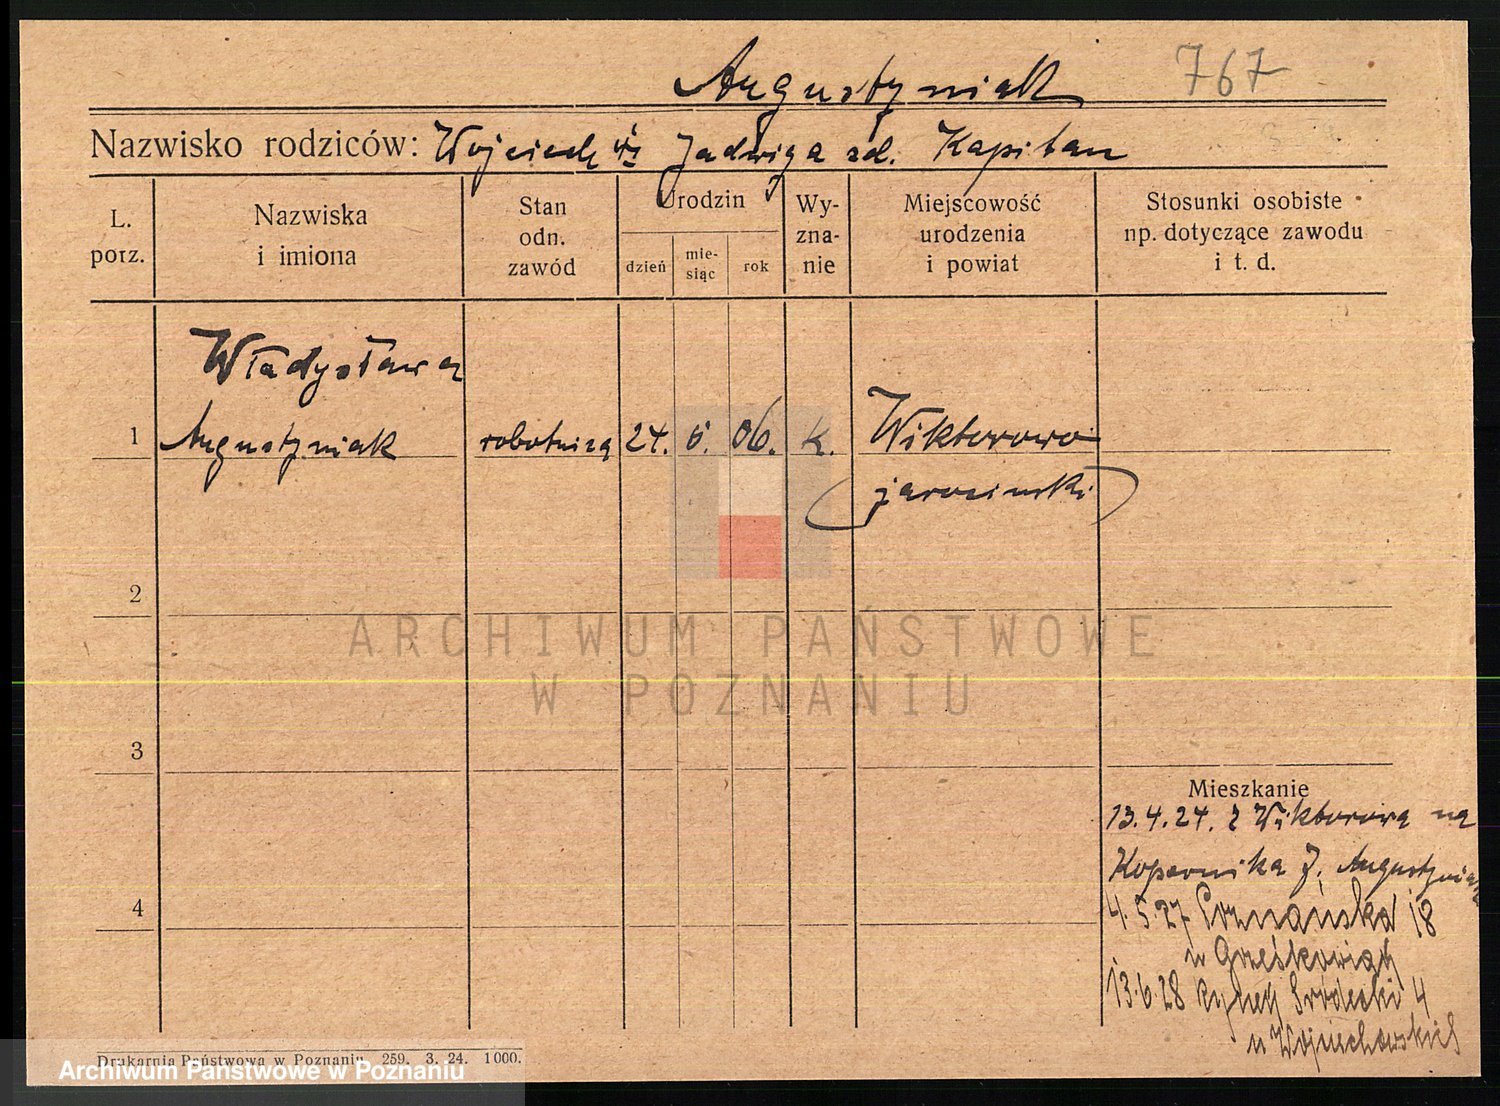 Augustyniak 767
Nazwisko rodziców: Wojciech i Jadwiga zd. Kapitan
L. porz.
Nazwiska i imiona
Stan odn. zawód
Urodzin
dzień
mie-siąc
rok
Wy-zna-nie
Miejscowość urodzenia i powiat
Stosunki osobiste np. dotyczące zawodu i t. d.
Władysława
1 Augustyniak robotnica 24. 6. 06. k. Wiktorowo
(jarocinski)
2
ARCHIWUM PAŃSTWOWE
W POZNANIU
3
Mieszkanie
13.4.24. z Wiktorowa na
Kopernika J. Augustyniak
4
4.5.27 Poznańska 18
u Grześkowiak
13.6.28 Rynek Śródecki 4
u Wojciechowskich
Drukarnia Państwowa w Poznaniu 259. 3. 24. 1000.
Archiwum Państwowe w Poznaniu